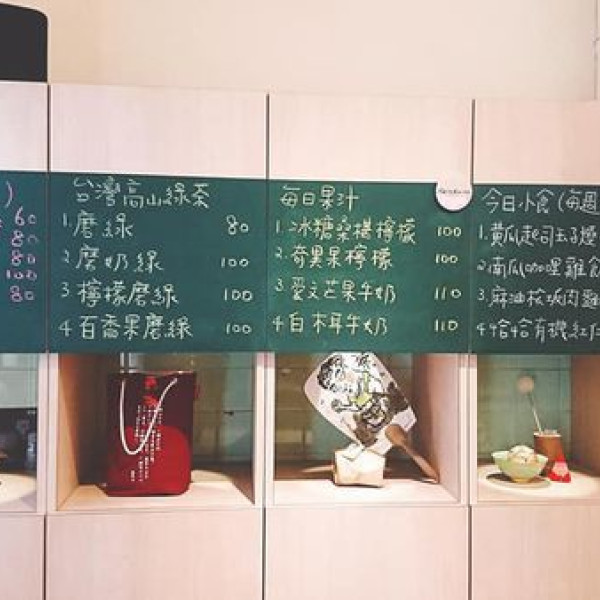 )
60
80
80
100
80
台灣高山綠茶
1.磨綠 80
2.磨奶綠 100
3.檸檬磨綠 100
4.百香果磨綠 100
每日果汁
1.冰糖桑椹檸檬 100
2.奇異果檸檬 100
3.愛文芒果牛奶 110
4.白木耳牛奶 110
今日小食(每週
1.黃瓜起司玉子燒
2.南瓜咖哩雞食
3.麻油核坂肉雞
4.4合4合有機紅仁